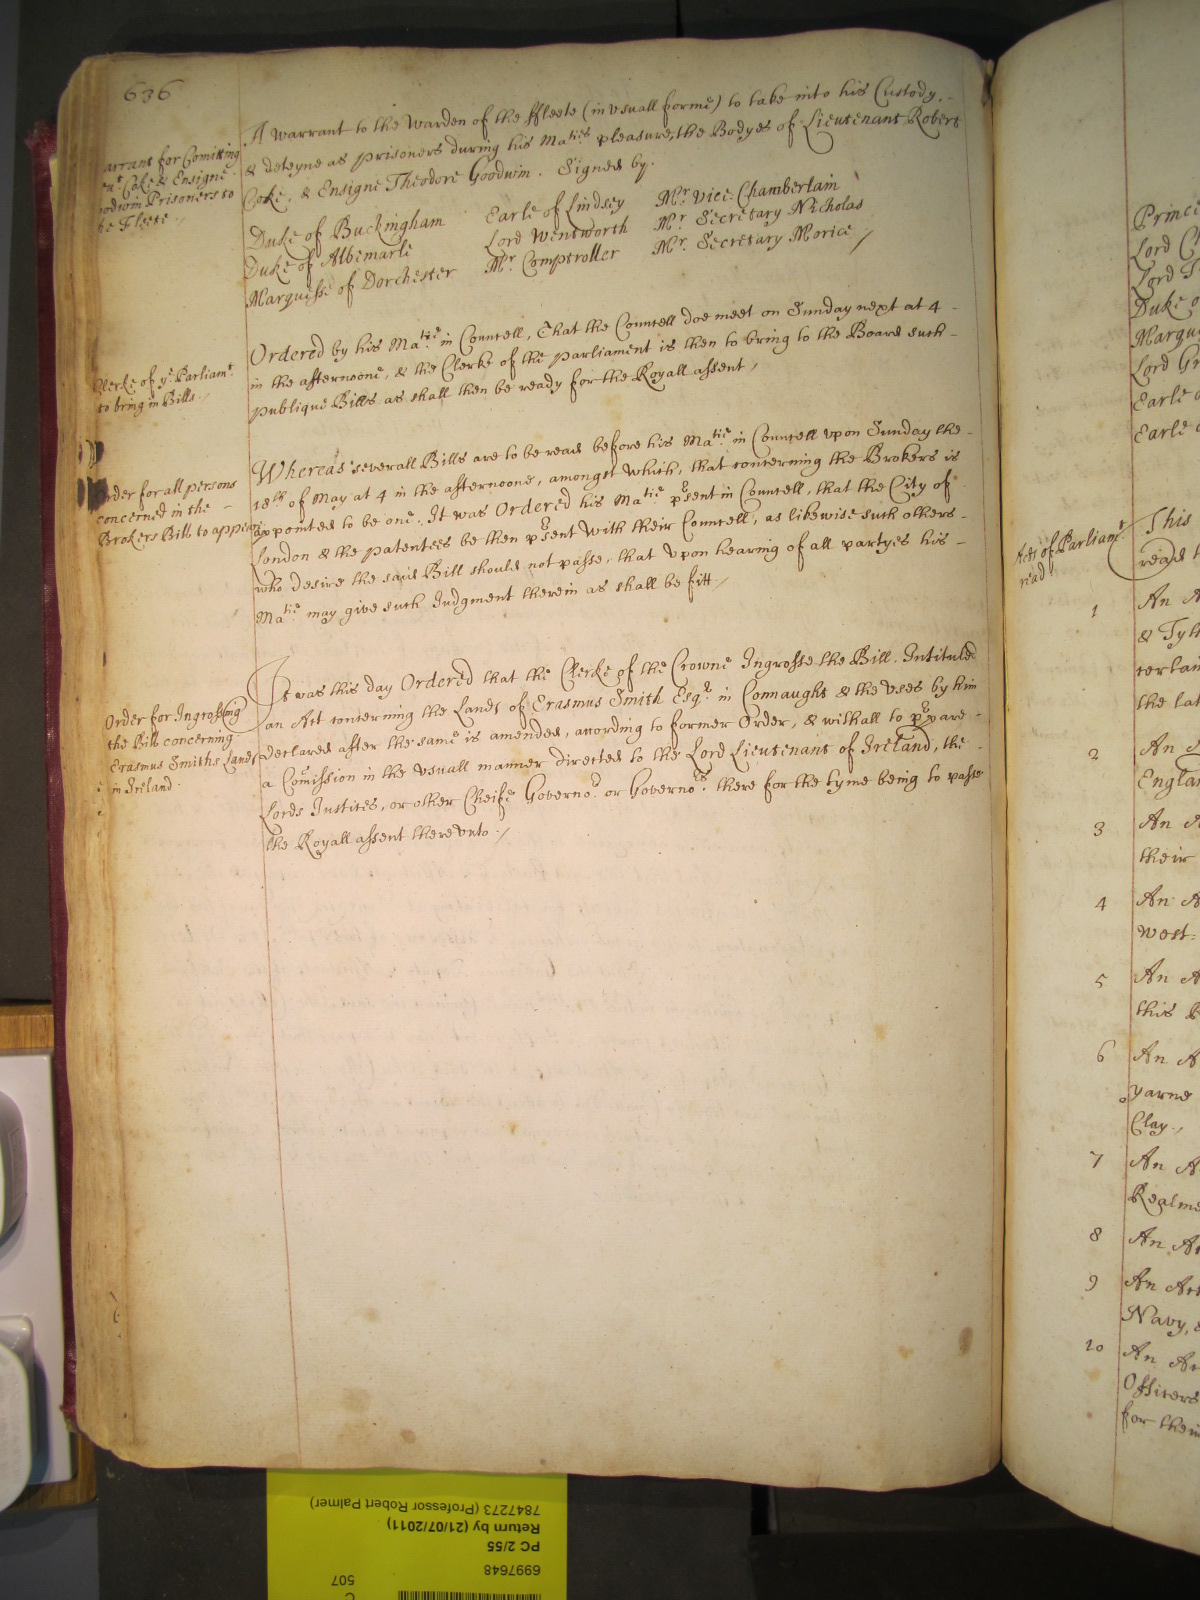 636
arrant for Comitting
nt. Coke & Ensigne
oodwin Prisoners to
he Fleete./
A warrant to the Warden of the ffleete (in vsuall forme) to take into his Custody,
& deteyne as prisoners during his Maties pleasure, the Bodyes of Lieutenant Robert
Coke, & Ensigne Theodore Goodwin. Signed by.
Duke of Buckingham Earle of Lindsey Mr. Vice Chamberlain
Duke of Albemarle Lord Wentworth Mr. Secretary Nicholas
Marquesse of Dorchester Mr. Comptroller Mr. Secretary Morice /
Clerke of ye. Parliamt.
to bring in Bills./
Ordered by his Matie. in Councell, That the Councell doe meet on Sunday next at 4
in the afternoone, & the Clerke of the parliament is then to bring to the Board such
publique Bills as shall then be ready for the Royall assent /
rder for all persons
concerned in the
Brokers Bill to appear
Whereas severall Bills are to be read before his Matie. in Councell vpon Sunday the
18th of May at 4 in the afternoone, amongst which, that concerning the Brokers is
appointed to be one. It was Ordered his Matie prsent in Councell, that the City of
London & the patentees be then prsent with their Councell, as likewise such others
who desire the said Bill should not passe, that vpon hearing of all partyes his
Matie may give such Judgment therein as shall be fitt /
Order for Ingrossing
the Bill concerning
Erasmus Smiths Lands
in Ireland.
It was this day Ordered that the Clerke of the Crowne Ingrosse the Bill. Intituled
an Act concerning the Lands of Erasmus Smith Esqr. in Connaught & the vses by him
declared after the same is amended, according to former Order, & withall to prpare
a Comission in the vsuall manner directed to the Lord Lieutenant of Ireland, the
Lords Justices, or other Cheife Governor. or Governors. there for the tyme being to passe
the Royall assent therevnto./
Prince
Lord C
Lord
Duke o
Marqu
Lord Gr
Earle
Earle
Acts of Parliamt.
read
This
read
1 An A
& Tyl
certai
the lat
2 An
Englan
3 An A
their
4 An A
west:
5 An A
this
6 An A
yarne
Clay./
7 An A
Realme
8 An A
9 An Act
Navy,
10 An Ac
Officers
for thei
507
6997648
PC 2/55
Return by (21/07/2011)
7847273 (Professor Robert Palmer)